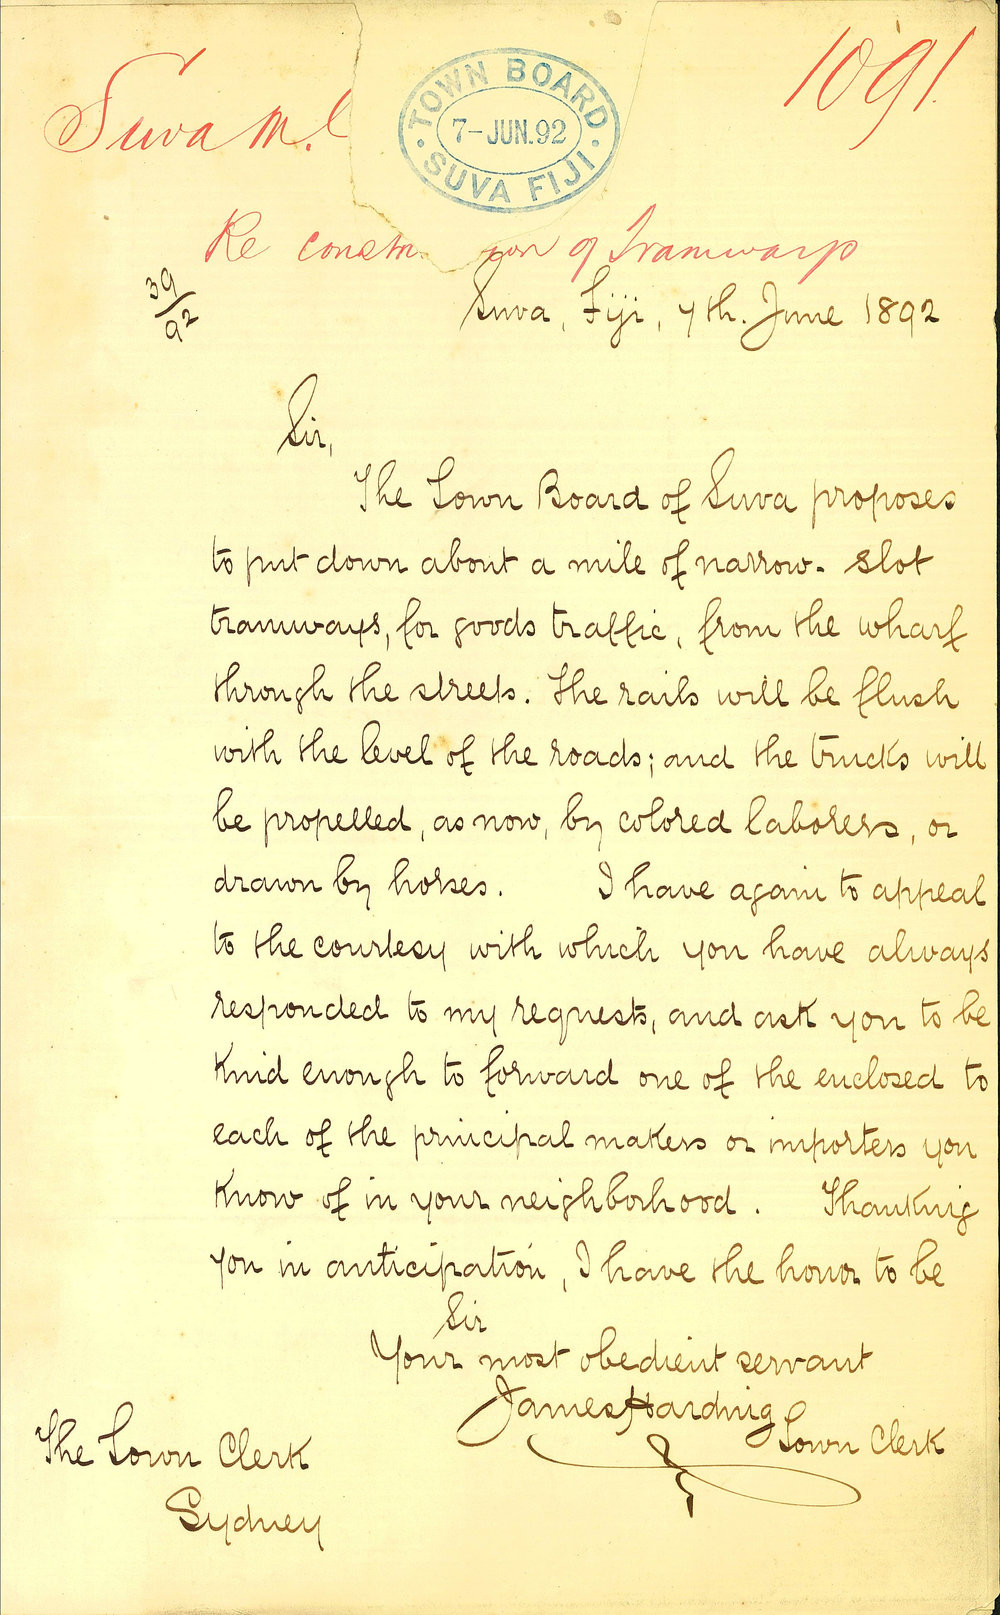 Suva M.C
1091.
TOWN BOARD
7-JUN.92
SUVA FIJI
Re constr ion of Tramways
39/92
Suva, Fiji, 7th. June 1892
Sir,
The Town Board of Suva proposes
to put down about a mile of narrow-slot
tramways, for goods traffic, from the wharf
through the streets. The rails will be flush
with the level of the roads; and the trucks will
be propelled, as now, by colored laborers, or
drawn by horses. I have again to appeal
to the courtesy with which you have always
responded to my requests, and ask you to be
kind enough to forward one of the enclosed to
each of the principal makers or importers you
know of in your neighborhood. Thanking
you in anticipation, I have the honor to be
Sir
Your most obedient servant
James Harding
Town Clerk
The Town Clerk
Sydney